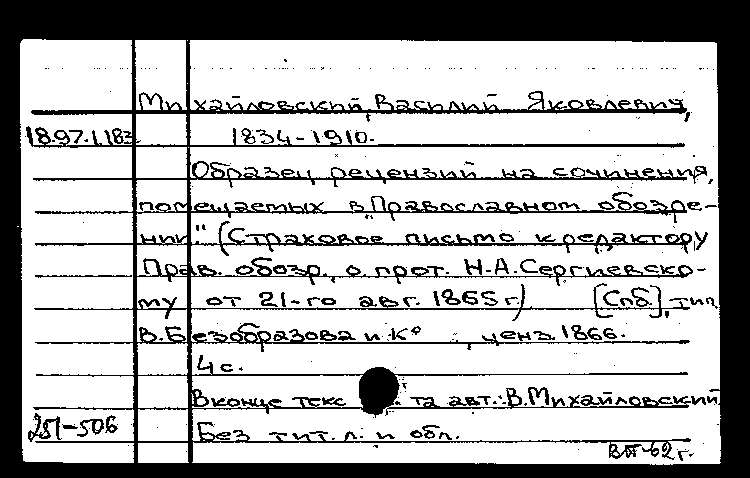 Михайловский, Василий Яковлевич,
18.97.1.183 1834-1910.
Образец рецензий на сочинения,
помещаемых в „Православном обозре-
нии." (Страховое письмо к редактору
Прав. обозр., о. прот. Н.А.Сергиевско-
му от 21-го авг. 1865 г.) [Спб], тип.
В.Безобразова и К° , ценз. 1866.
4 с.
В конце текста авт.: В.Михайловский
251-506 Без тит. л. и обл.
ВП-62 г.